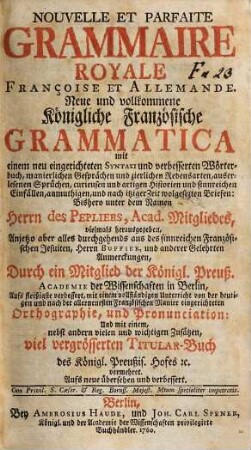 NOUVELLE ET PARFAITE
GRAMMAIRE
ROYALE
FRANÇOISE ET ALLEMANDE.
Neue und vollkommene
Königliche Französische
GRAMMATICA
mit
einem neu eingerichteten SYNTAXI und verbesserten Wörter-
buch, manierlichen Gesprächen und zierlichen Redensarten, auser-
lesenen Sprüchen, curieusen und artigen Historien und sinnreichen
Einfällen, anmuthigen, und nach itziger Zeit wolgesetzten Briefen:
Bißhero unter dem Namen
Herrn des PEPLIERS, Acad. Mitgliedes,
vielmals herausgegeben,
Anjetzo aber alles durchgehends aus des sinnreichen Französi-
schen Jesuiten, Herrn BUFFIER, und anderer Gelehrten
Anmerckungen,
Durch ein Mitglied der Königl. Preuß.
ACADEMIE der Wissenschaften in Berlin,
Aufs fleißigste verbessert, mit einem vollständigen Unterricht von der deut-
gen und nach der allerneusten Französischen Manier eingerichteten
Orthographie, und Pronunciation:
Und mit einem,
nebst andern vielen und wichtigen Zusätzen,
viel vergrösserten TITULAR-Buch
des Königl. Preußis. Hofes ꝛc.
vermehret.
Aufs neue übersehen und verbessert.
Cum Privil. S. Cæsar. & Reg. Boruss. Majest. Mtum specialiter impetratis.
Berlin,
Bey AMBROSIUS HAUDE, und JOH. CARL SPENER,
Königl. und der Academie der Wissenschaften privilegirte
Buchhändler. 1760.